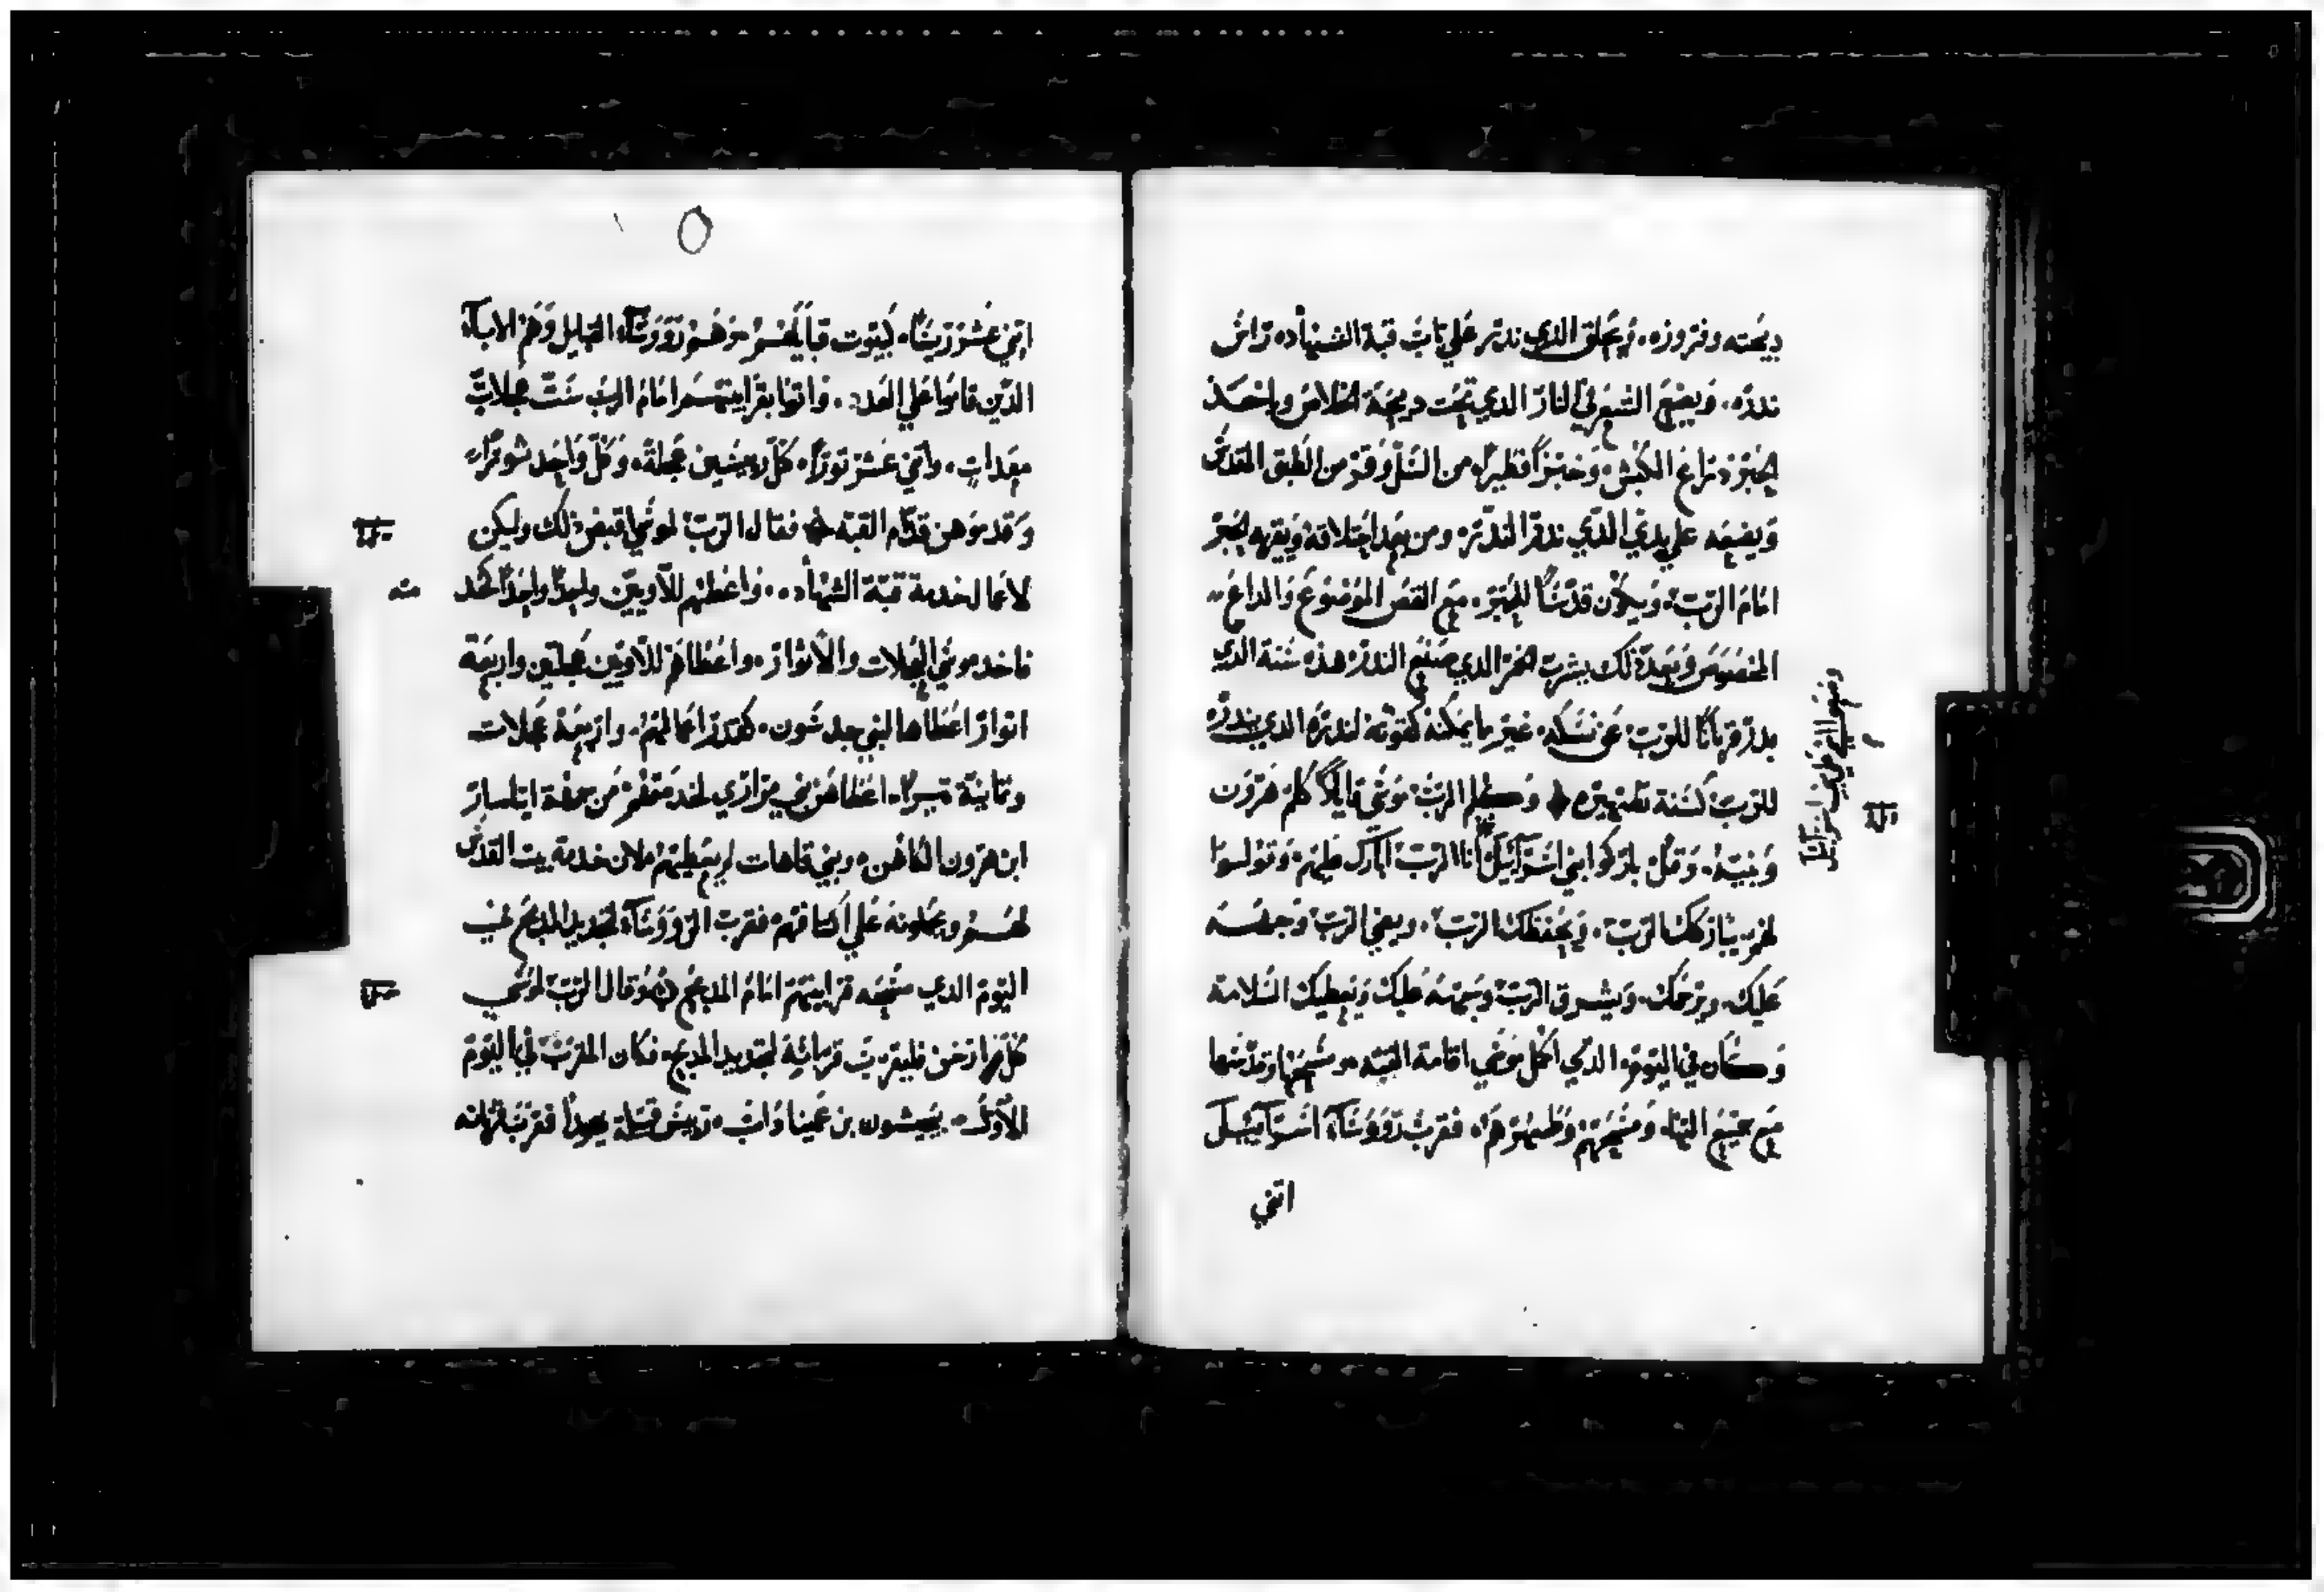 ديحته وفروزه. ويحلق الذي ندر علي باب قبة الشهاده راس
ندره. ويضع الشعر في النار الذي تحت دبيحة الخلاص وياخد
الحبر دراع الكبش وخبزاً فطيراً من السل وقرص من الطبق المقدس
ويضعه علي يدي الذي ندر الندر ومن بعد احتلاقه ويقربه الحبر
امام الرب. ويكون قدساً للحبر. مع القص الموضوع والدراع
المخصوص وبعد ذلك يشرب الخمر الذي صنع الندر هذه سنة الذي
يدر قرباناً للرب عن نسكه غير ما يمكنه كقوته لندره الذي ينذره
للرب كسنة تطهيره وكلم الرب موسي قايلاً كلم هرون
وبنيه. وقل باركوا بني اسراييل انا الرب ابارك عليهم وتقولوا
لهم يباركك الرب. ويحفظك الرب. ويضي الرب وجهه
عليك. ويرحمك. ويشرق الرب وجهه عليك ويعطيك السلامة
وكان في اليوم الذي اكمل موسي اقامة القبه ومسحها وقدسها
مع جميع اليتها ومسحهم وطهرها. فقرب رووسآء اسرآييل
اتني
وضعوا اسمي علي بني اسرآييل
اتني عشر ريسا. بيوت قبايلهم وهم رووسآء القبايل وهم الابآء
الذين قاموا علي العدد. واتوا بقرابينهم امام الرب ست عجلات
معدات. واتني عشر تورا. كل ريسين عجلة. وكل واحد تور
وقدموهن قدام القبه فقال الرب لموسي اقبض ذلك وليكن
لاعمال خدمة قبة الشهاده. واعطهم للاويين واحداً واحداً كحد
فاخد موسي العجلات والاتوار. واعطاهم للاويين عجلتين واربعة
اتوار اعطاها لبني جدشون. كقدر اعمالهم. واربعة عجلات
وتمانية تيرا. اعطاهن بني مراري لخدمتهم من جهة ايتامار
ابن هرون الكاهن. وبني قاهات لم يعطيهم لان خدمة بيت القدس
لهم ويحملونه علي اكتافهم فقرب الرووسآء لتجديد المدبح في
اليوم الذي مسحه قرابينهم امام المدبح وقال الرب لموسي
كل اركن فليقرب قربانه لتجديد المدبح. فكان المقرب في اليوم
الاول. نحشون بن عميناداب. ريس قبيلة يهودا فقرب قربانه